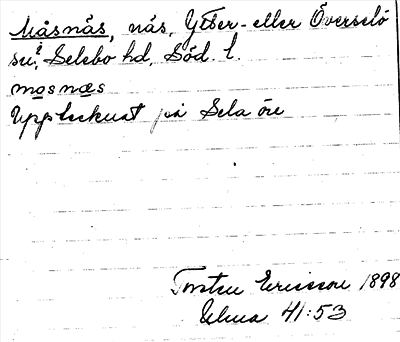 Måsnäs, näs, Ytter- eller Överselö
sn?, Selebo hd, Söd. l.
mosnæs
Upptecknat på Sela öre
Torsten Ericsson 1898
Ulma 41:53